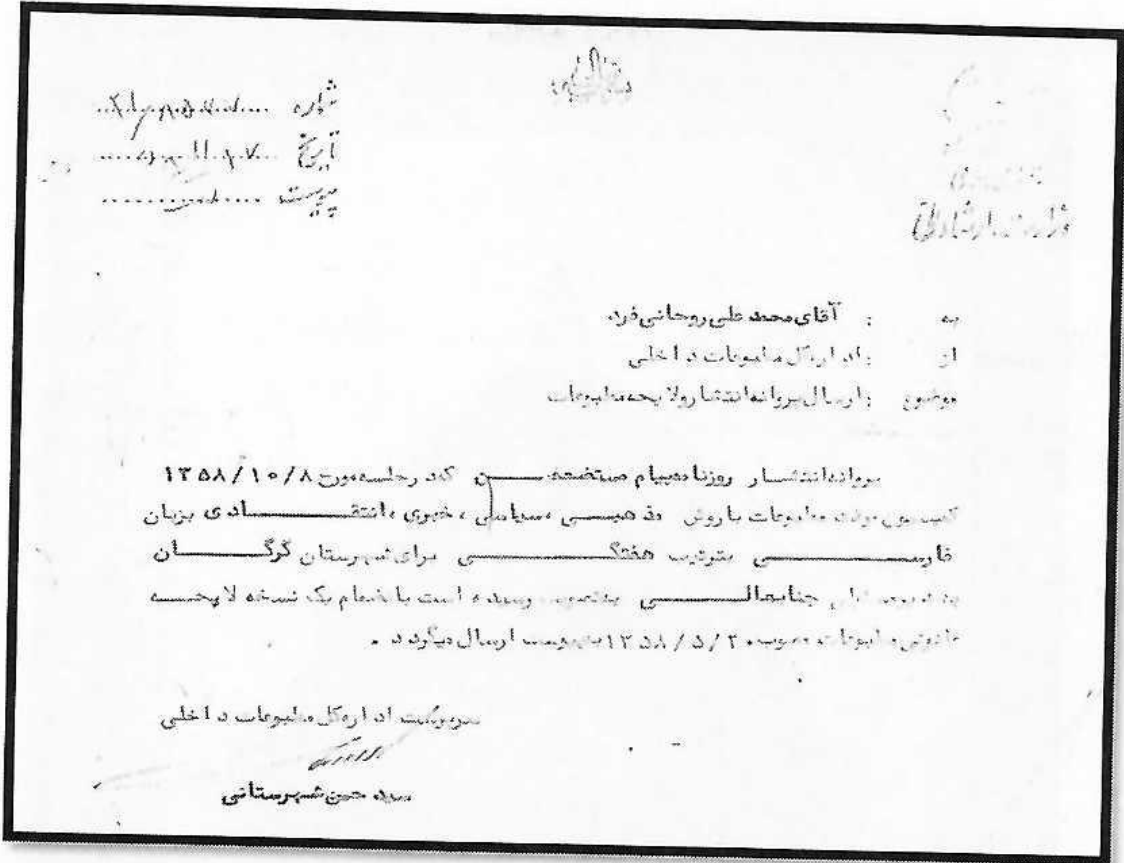 بسمه تعالی
شماره
تاریخ
پیوست
وزارت ارشاد ملی
به : آقای محمد علی روحانی فرد
از : اداره کل مطبوعات داخلی
موضوع : ارسال پروانه انتشار ولایحه مطبوعات
پروانه انتشار روزنامه پیام مستضعفین که در جلسه مورخ ۱۳۵۸/۱۰/۸
کمیسیون مطبوعات با روش مذهبی ، سیاسی ، خبری ، انتقادی بزبان
فارسی بترتیب هفتگی برای شهرستان گرگان
جنابعالی بتصویب رسیده است با ضمام یک نسخه لایحه
قانونی مطبوعات مصوب ۱۳۵۸/۵/۲۰ به پیوست ارسال میگردد .
سرپرست اداره کل مطبوعات داخلی
سید حسن شهرستانی